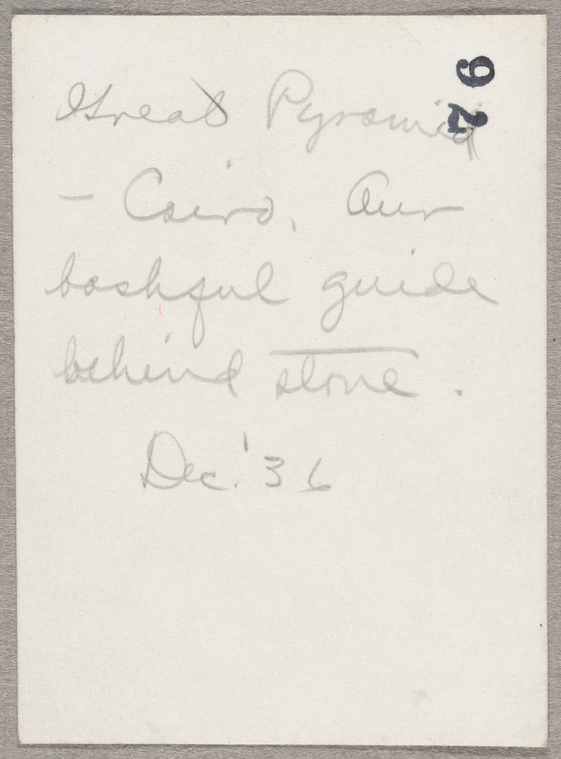 Great Pyramid
- Cairo. Our
bashful guide
behind stone.
Dec. '36
92